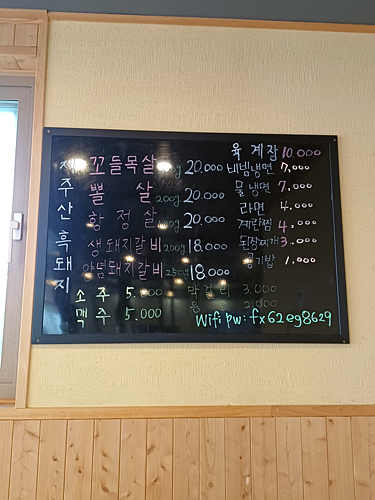 제주산흑돼지
꼬들목살 200g 20.000
뽈살 200g 20.000
항정살 20.000
생돼지갈비 200g 18.000
양념돼지갈비 250g 18.000
소주 5.000
맥주 5.000
육계장 10.000
비빔냉면 7,000
물냉면 7,000
라면 4,000
계란찜 4,000
된장찌개 3.000
공기밥 1.000
막걸리 3.000
2.000
Wifi pw: fx62eg8629